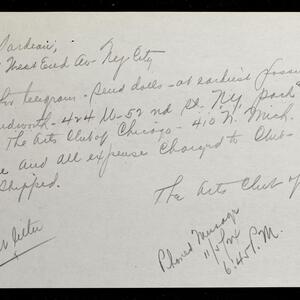 West End Av - Ny City
telegram - Send dolls - at earliest possi
udworth - 424 W - 52 nd St. N.Y. pack
The Arts Club of Chicago - 410 N. Mich.
and all expense Charged to Club -
Shipped.
The Arts Club of
Phoned Message
6:45 P.M.